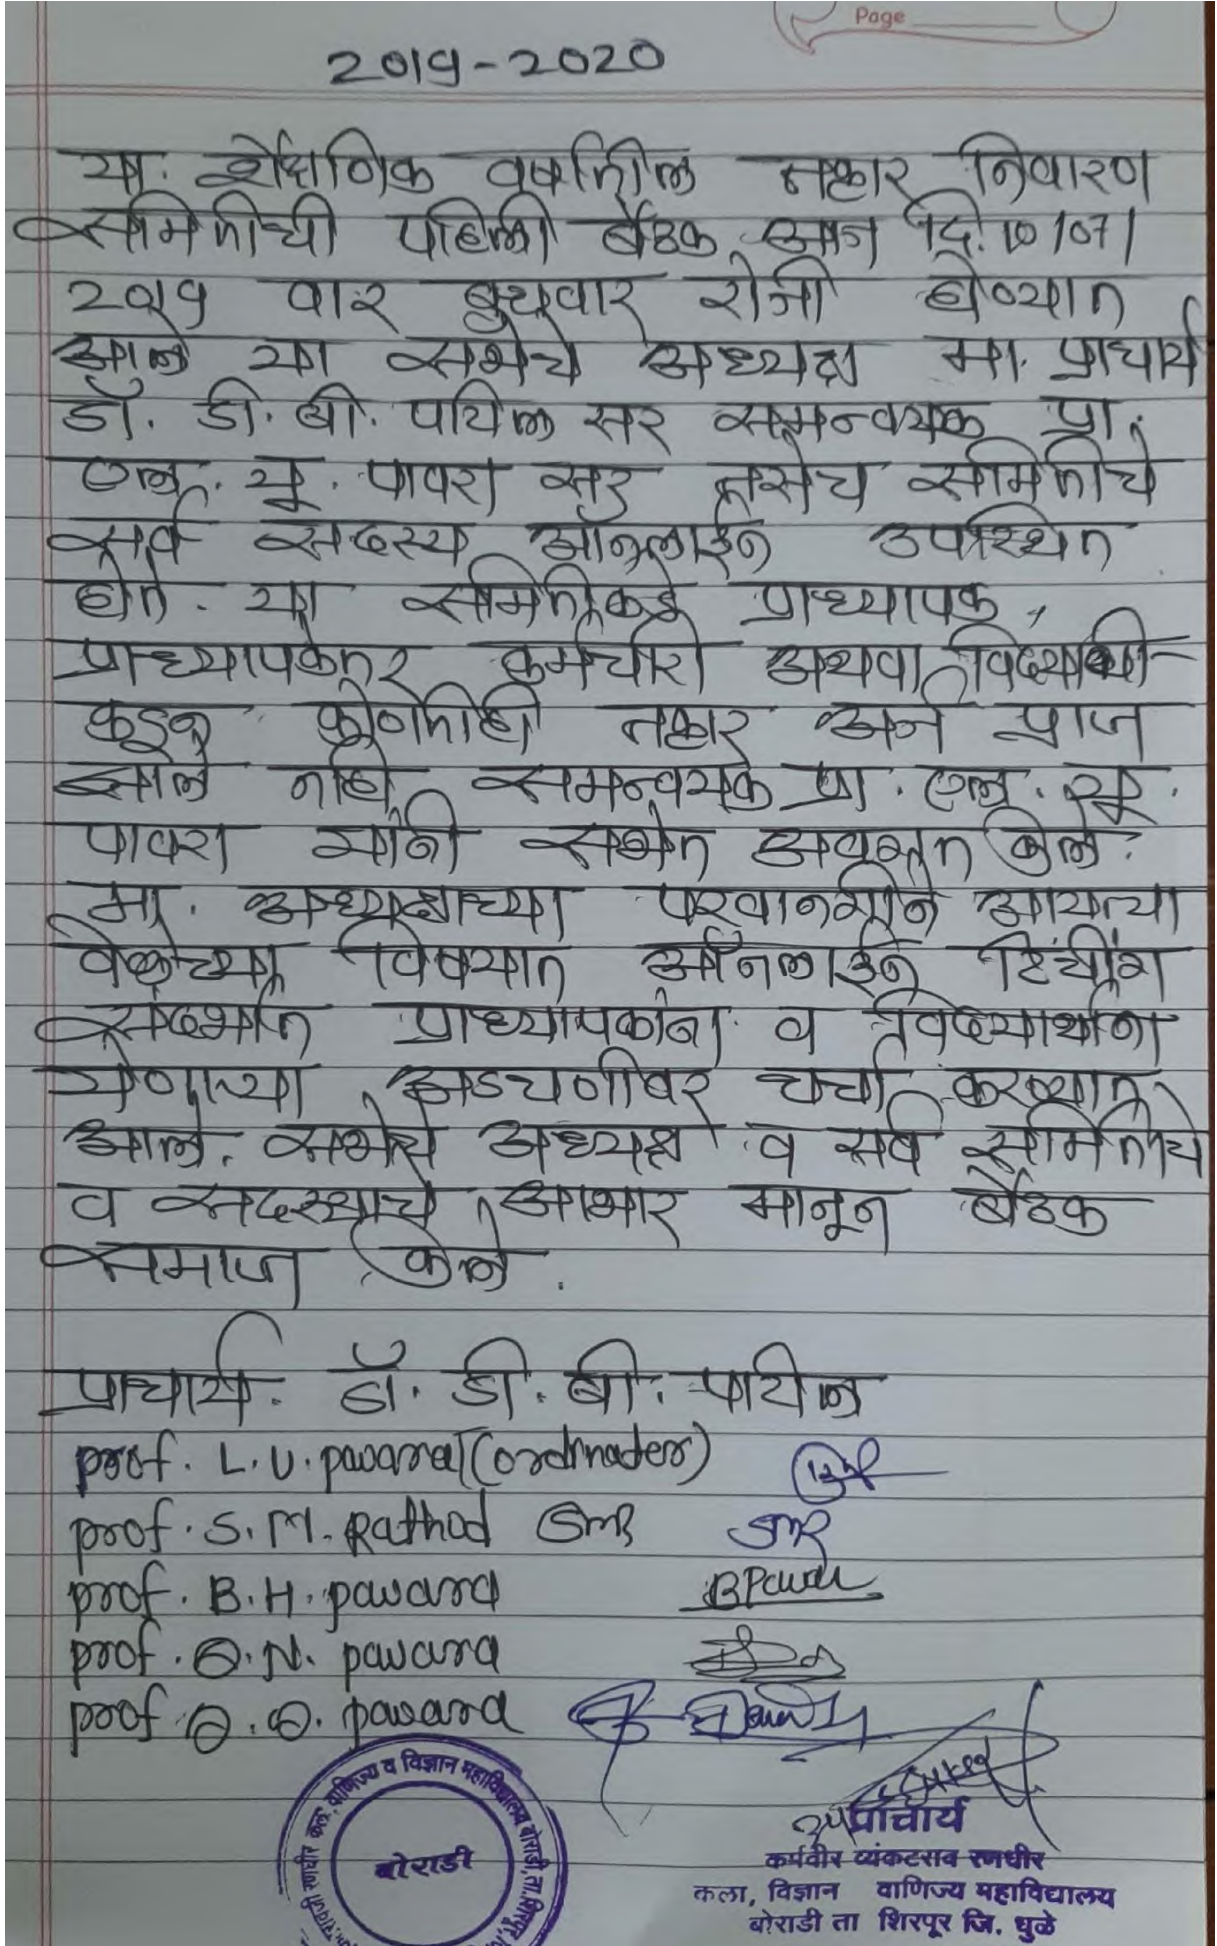 Page
2019-2020
या. शैक्षणिक वर्षातील तक्रार निवारण
समितीची पहिली बैठक आज दि. 10/07/
2019 वार बुधवार रोजी घेण्यात
आले या सभेचे अध्यक्ष मा. प्राचार्य
डॉ. डी. बी. पाटील सर समन्वयक प्रा.
एल. यू. पावरा सर तसेच समितीचे
सर्व सदस्य ऑनलाईन उपस्थित
होते. या समितीकडे प्राध्यापक,
प्राध्यापकेतर कर्मचारी अथवा विद्यार्थी-
कडून कोणतीही तक्रार अर्ज प्राप्त
झाले नाही समन्वयक प्रा. एल. यू.
पावरा यांनी सभेत अवगत केले.
मा. अध्यक्षाच्या परवानगीने आयत्या
वेळेच्या विषयात ऑनलाईन टिचींग
संदर्भात प्राध्यापकांना व विद्यार्थांना
येणाऱ्या अडचणीवर चर्चा करण्यात
आले. सभेचे अध्यक्ष व सर्व समितीचे
व सदस्याचे आभार मानून बैठक
समाप्त केले.
प्राचार्य. डॉ. डी. बी. पाटील
prof. L.U. pawara (Cordinater)
prof. S.M. Rathod SMR SMR
prof. B.H. pawara BPawar
prof. O.N. pawara
prof. O.O. pawara
कला, वाणिज्य व विज्ञान महाविद्यालय बोराडी, ता. शिरपूर
बोराडी
प्राचार्य
कर्मवीर व्यंकटराव रणधीर
कला, विज्ञान वाणिज्य महाविद्यालय
बोराडी ता शिरपूर जि. धुळे